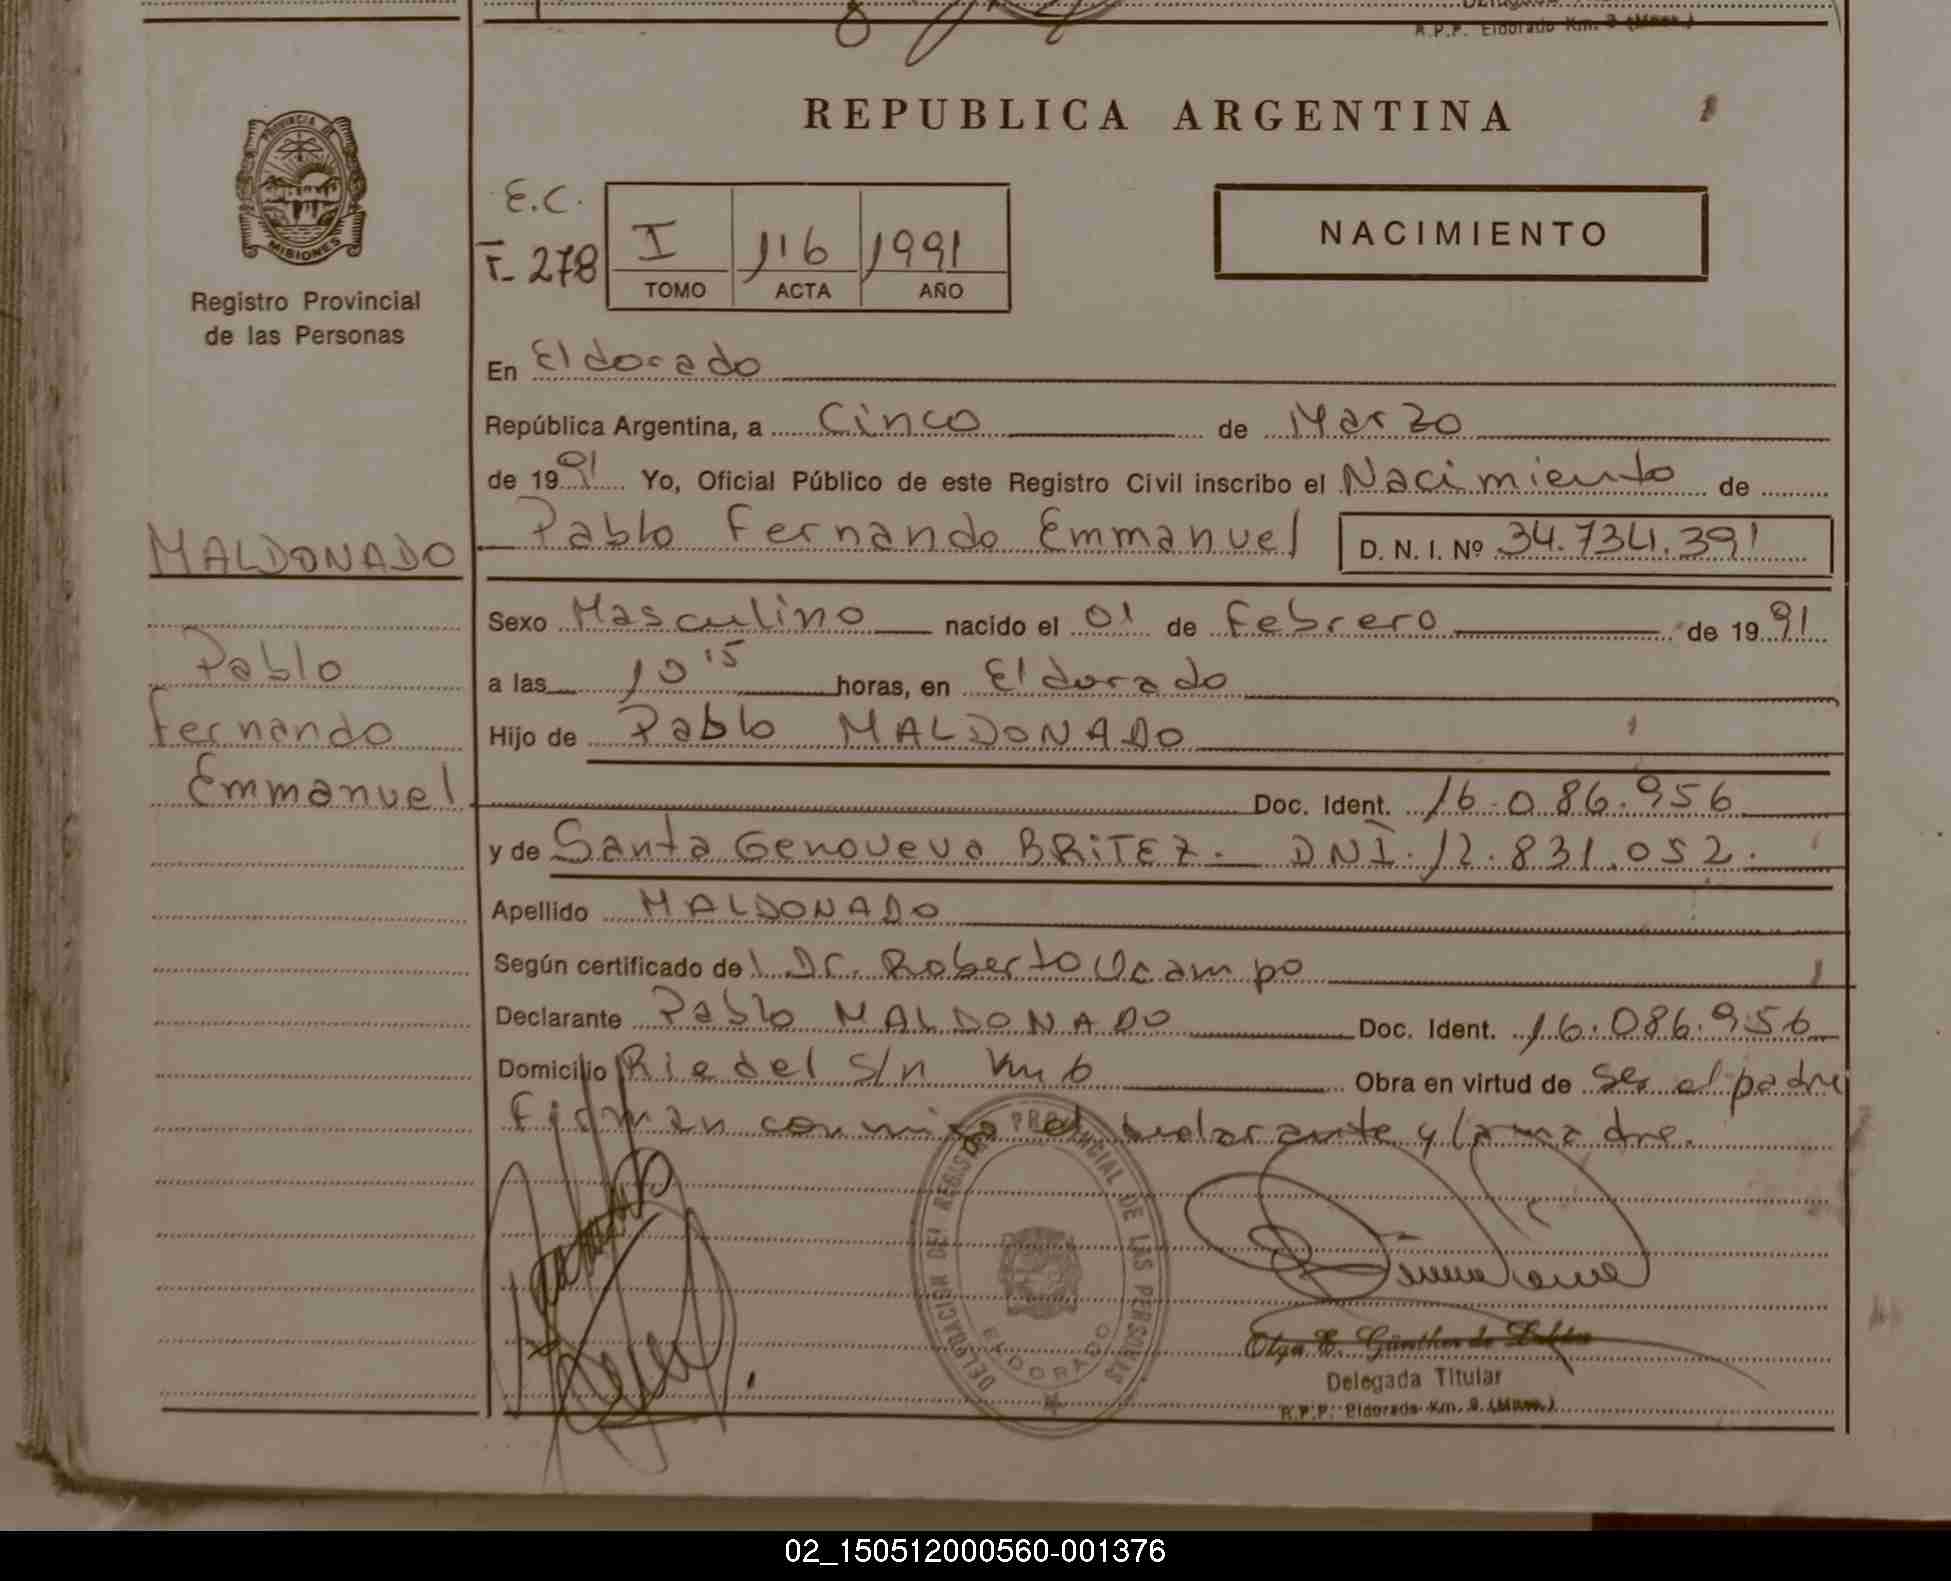 R.P.P. Eldorado Km. 9 (Mnes.)
PROVINCIA DE MISIONES
Registro Provincial
de las Personas
REPUBLICA ARGENTINA
NACIMIENTO
E.C.
F. 278
I 116 1991
TOMO ACTA AÑO
En Eldorado
República Argentina, a Cinco de Marzo
de 1991 Yo, Oficial Público de este Registro Civil inscribo el Nacimiento de
Pablo Fernando Emmanuel D. N. I. Nº 34.734.391
MALDONADO
Pablo
Fernando
Emmanuel
Sexo Masculino nacido el 01 de Febrero de 1991
a las 10 15 horas, en Eldorado
Hijo de Pablo MALDONADO
Doc. Ident. 16.086.956
y de Santa Genoveva BRITEZ. DNI. 12.831.052.
Apellido MALDONADO
Según certificado de Dr. Roberto Ocampo
Declarante Pablo MALDONADO Doc. Ident. 16.086.956
Domicilio Riedel s/n Km 6 Obra en virtud de ser el padre
Firman conmigo el declarante y la madre.
DELEGACION DEL REGISTRO PROVINCIAL DE LAS PERSONAS
ELDORADO
Olga E. Günther de
Delegada Titular
R.P.P. Eldorado Km. 9 (Mnes.)
02_150512000560-001376